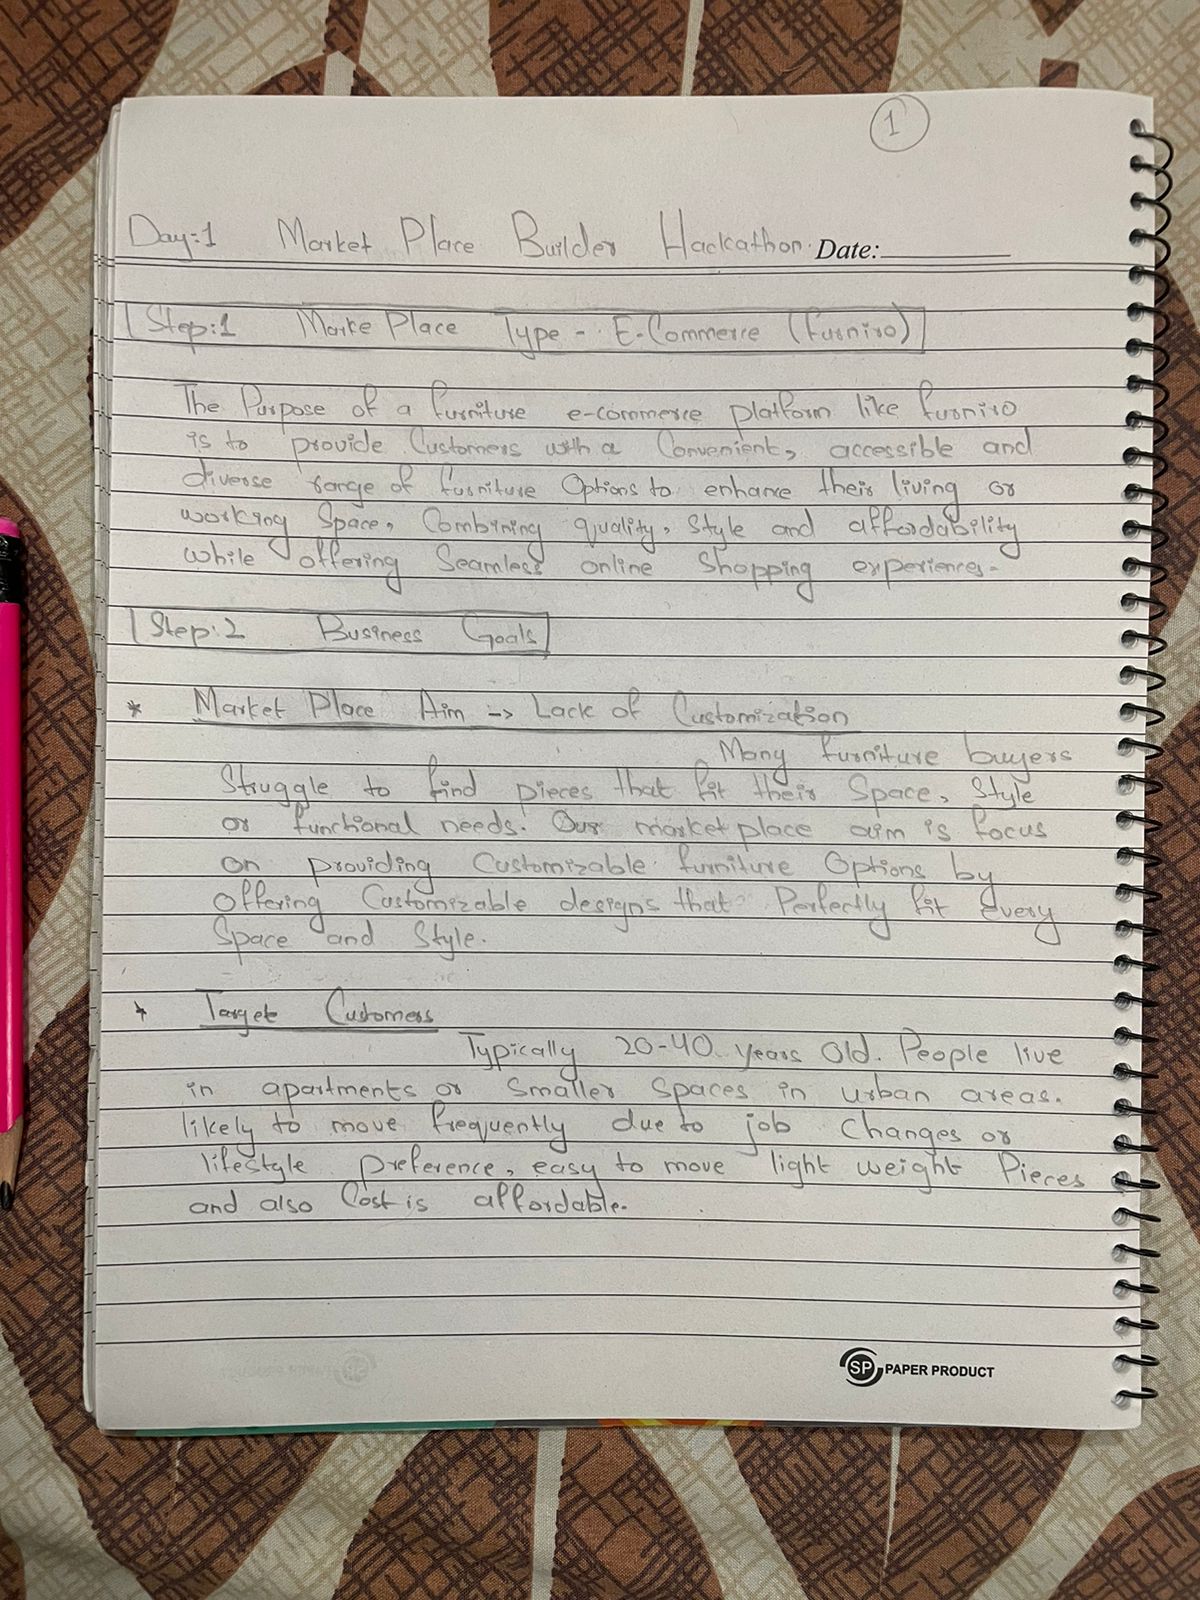 1
Day:1 Market Place Builder Hackathon. Date:
Step:1 Marke Place Type - E-Commerce (Furniro)
The Purpose of a furniture e-commerce platform like furniro
is to provide Customers with a Convenient, accessible and
diverse range of furniture Options to enhance their living or
working Space, Combining quality, Style and affordability
while offering Seamless online Shopping experiences.
Step:2 Business Goals
* Market Place Aim -> Lack of Customization
Many furniture buyers
Struggle to find pieces that fit their Space, Style
or functional needs. Our market place aim is focus
on providing Customizable furniture Options by
offering Customizable designs that Perfectly fit every
Space and Style.
* Target Customers
Typically 20-40 years Old. People live
in apartments or Smaller Spaces in urban areas.
likely to move frequently due to job Changes or
lifestyle preference, easy to move light weight Pieces
and also Cost is affordable.
SP PAPER PRODUCT